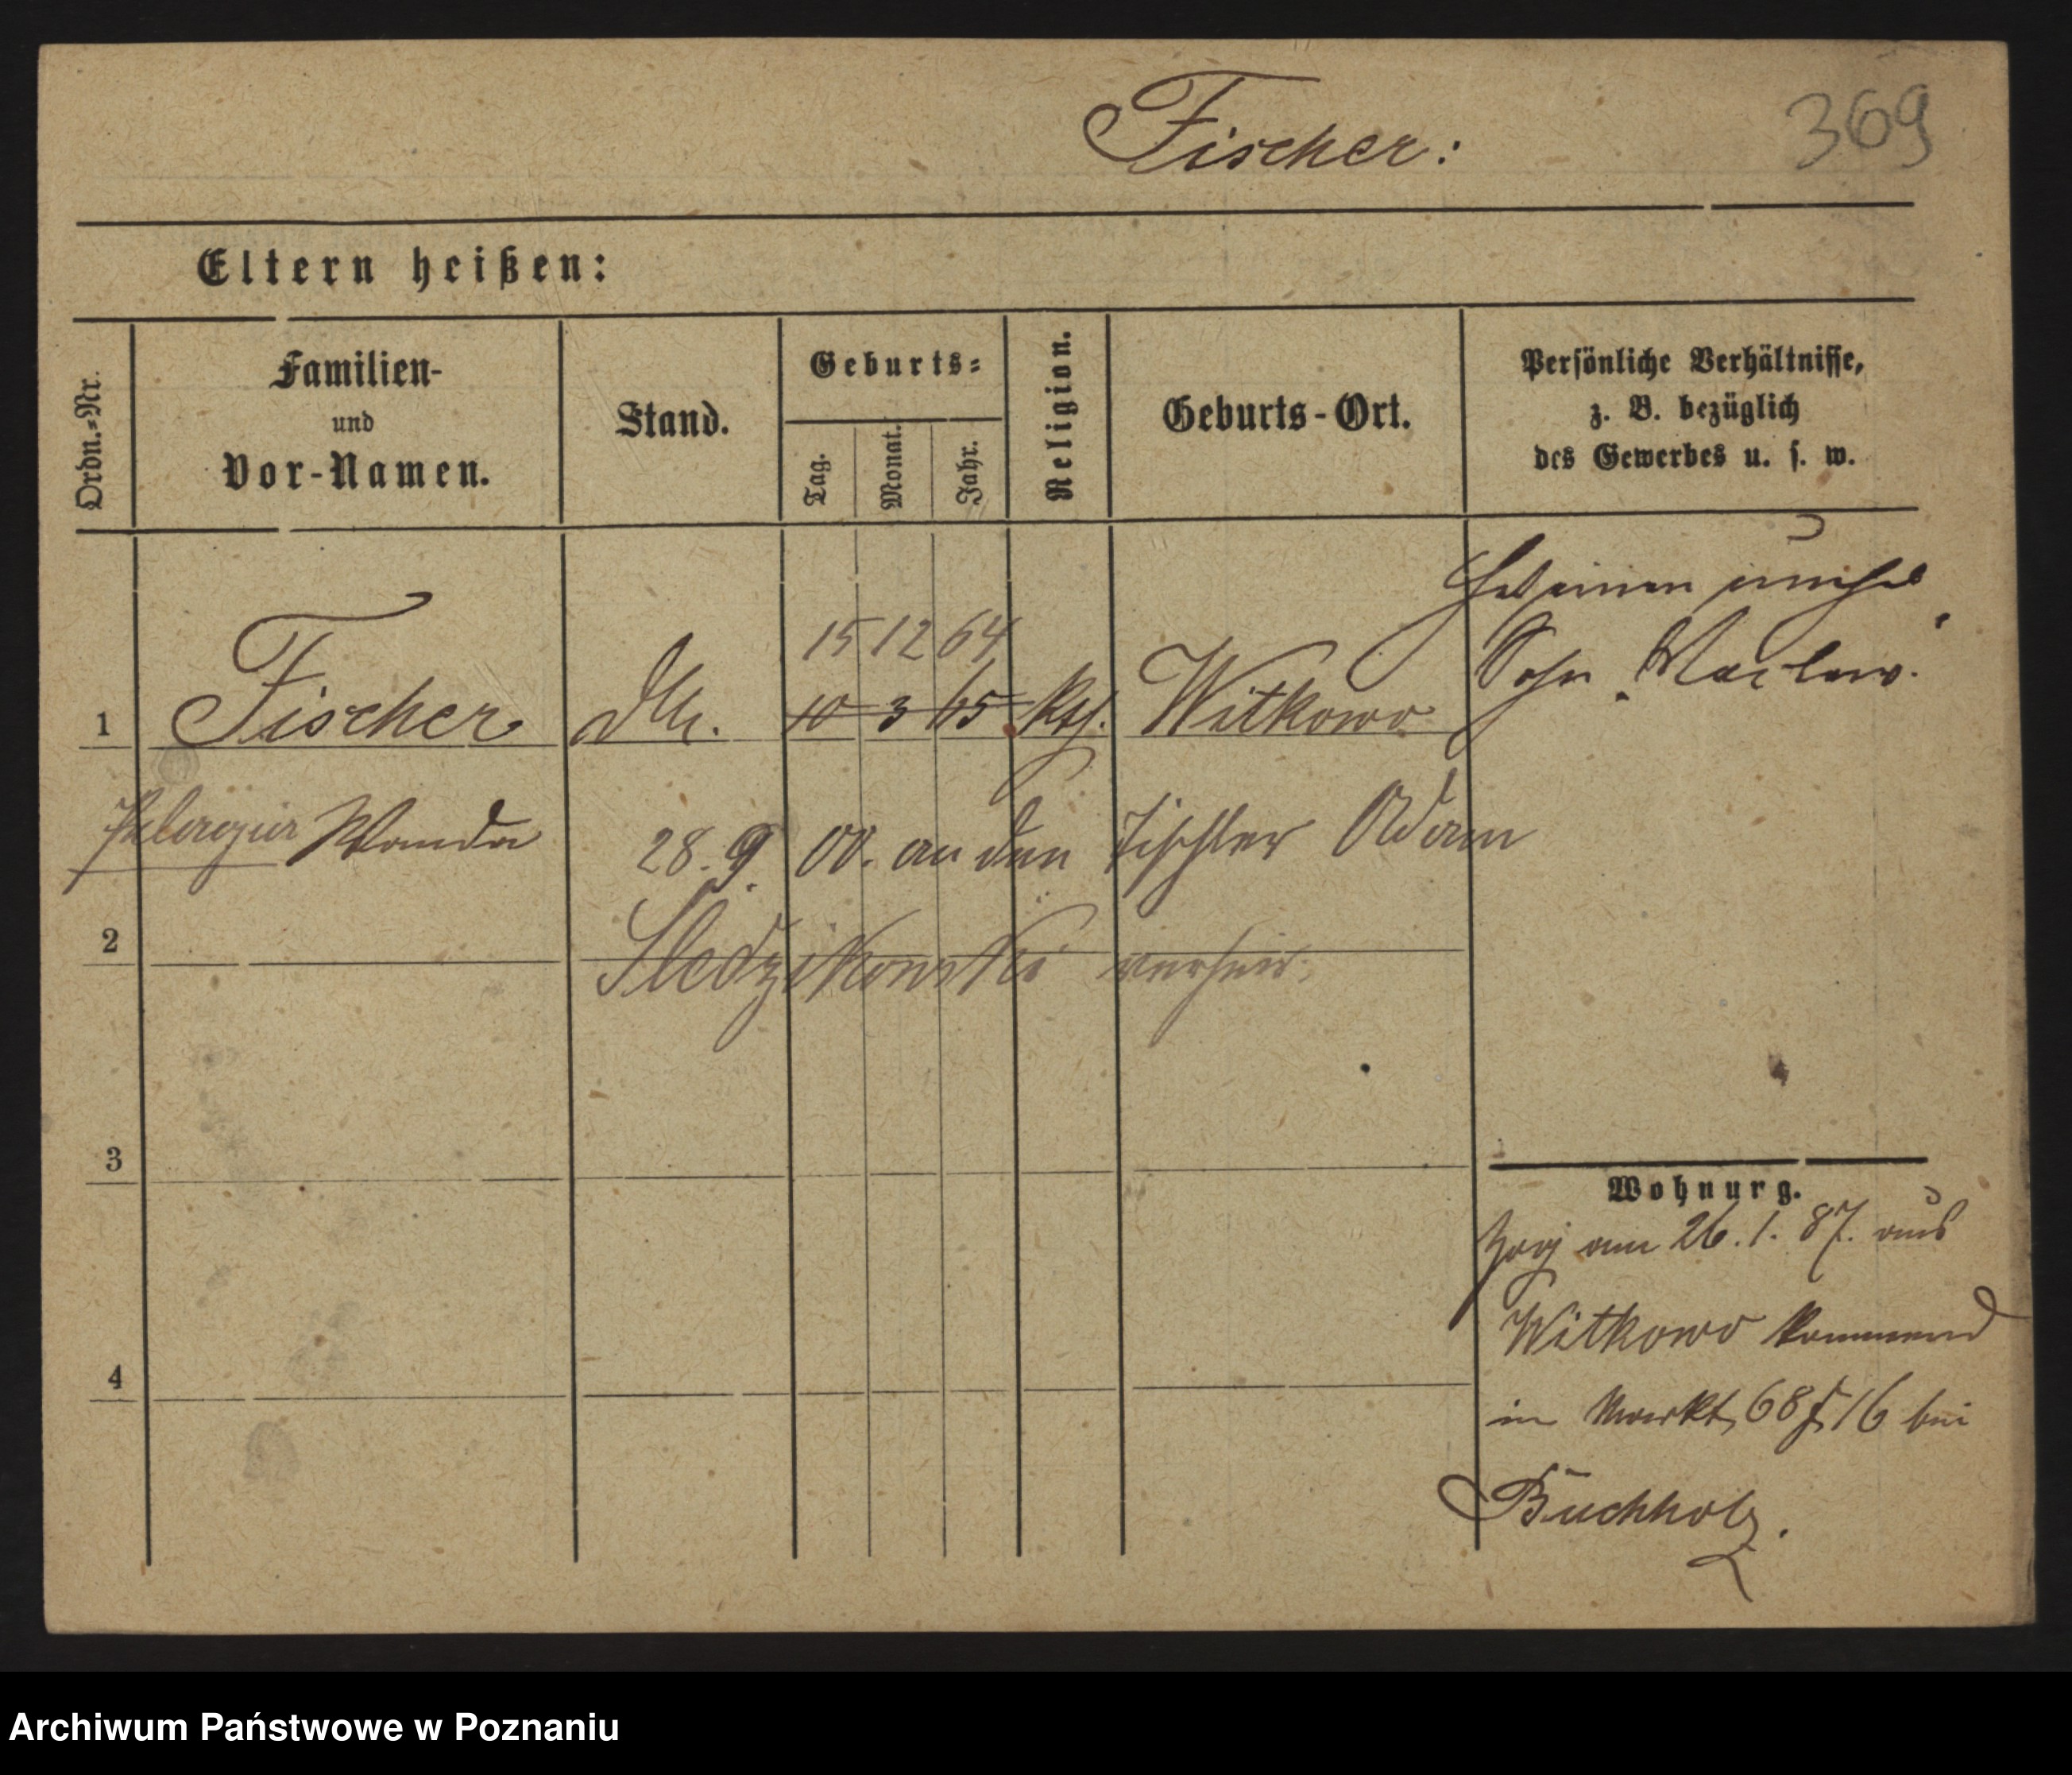 Fischer:
369
Eltern heißen:
Ordn.-Nr.
Familien-
und
Vor-Namen.
Stand.
Geburts-
Tag.
Monat.
Jahr.
Religion.
Geburts-Ort.
Persönliche Verhältnisse,
z. B. bezüglich
des Gewerbes u. s. w.
Hat einen unehel.
Sohn Waclaw.
15 12 64
1 Fischer 10 3 65 kth. Witkowo
Wanda
28. 9. 00. an den Tischler Adam
2
Sledzikowski verheir.
3
4
Wohnung.
Zog am 26. 1. 87. aus
Witkowo kommend
in Markt 68 16 bei
Buchholz.
Archiwum Państwowe w Poznaniu